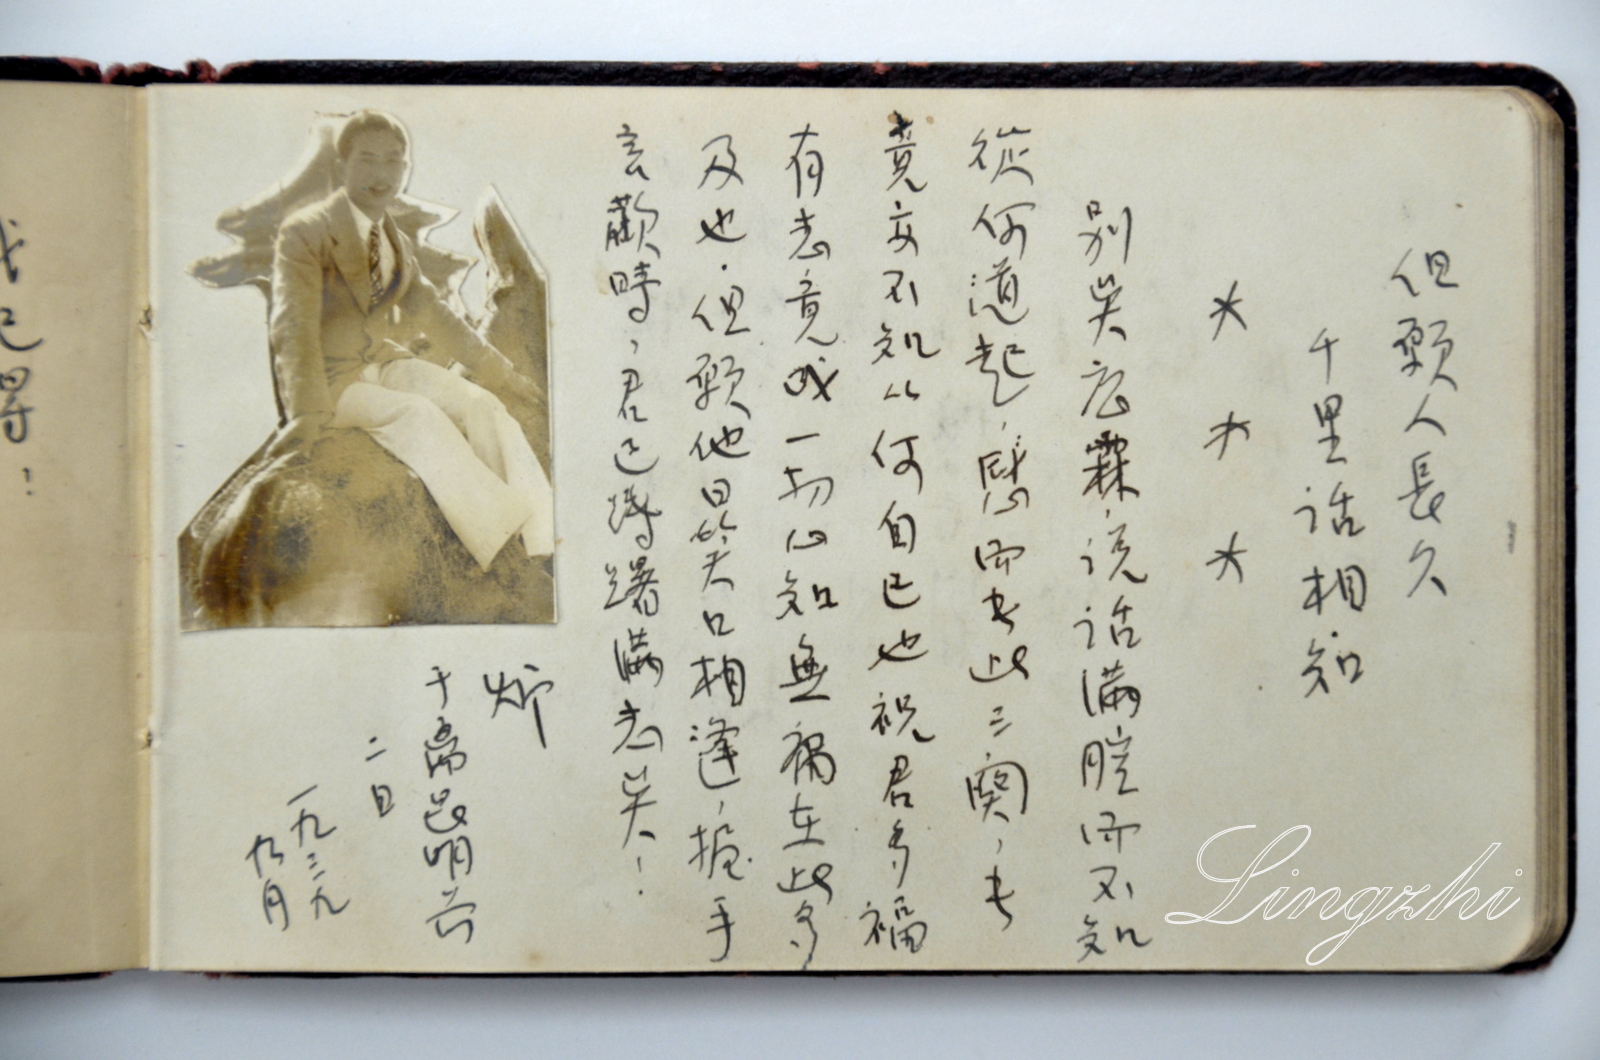 但願人長久
千里話相知
別矣應霖,說話滿腔而不知
從何道起,感而書此三闋,書
竟亦不知從何自已也祝君多福
有志竟成一切心知無禍在此多
及也.但願他日笑口相逢,握手
言歡時,君已躊躇滿志矣!
于昆明 
二日
一九三九
九月
我已得
!
Lingzhi